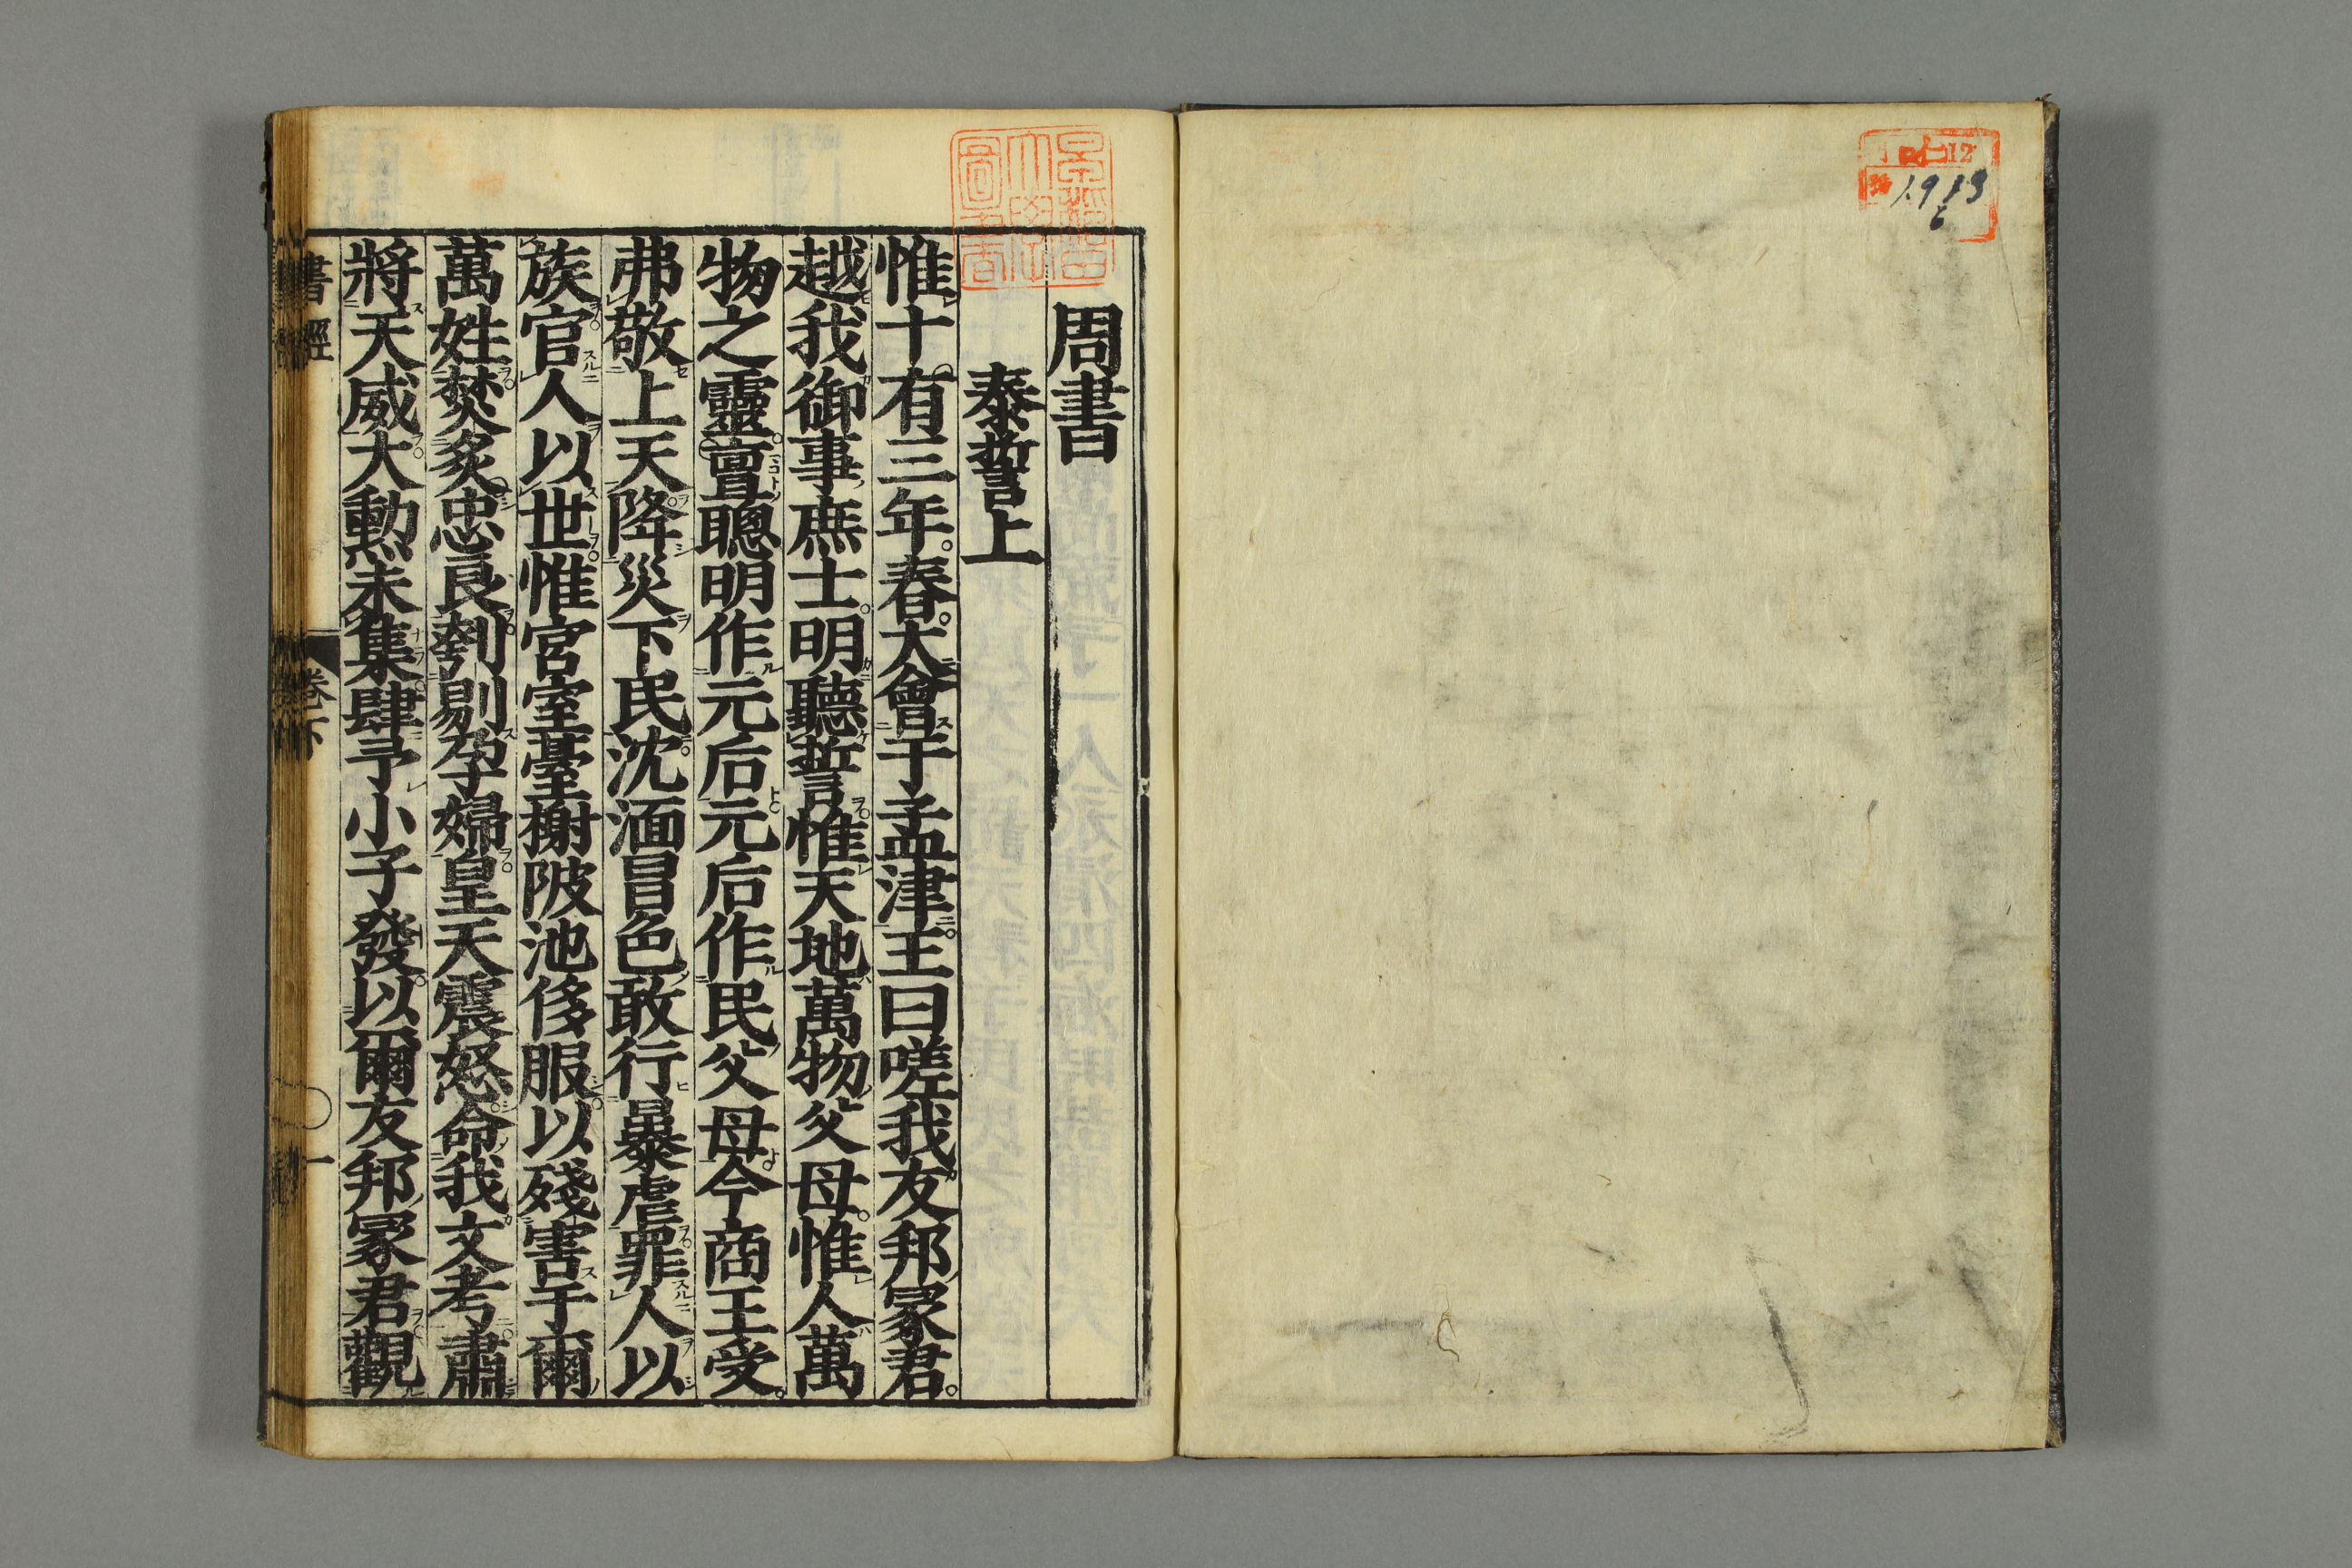 周書
泰誓上
惟十有三年春大會于孟津王曰嗟我友邦冢君
越我御事庶士明聽誓惟天地萬物父母惟人萬
物之靈亶聰明作元后元后作民父母今商王受
弗敬上天降災下民沈湎冒色敢行暴虐罪人以
族官人以世惟宮室臺榭陂池侈服以殘害于爾
萬姓焚炙忠良刳剔孕婦皇天震怒命我文考肅
將天威大勳未集肆予小子發以爾友邦冢君觀
書經 卷下 一
12
1913
6